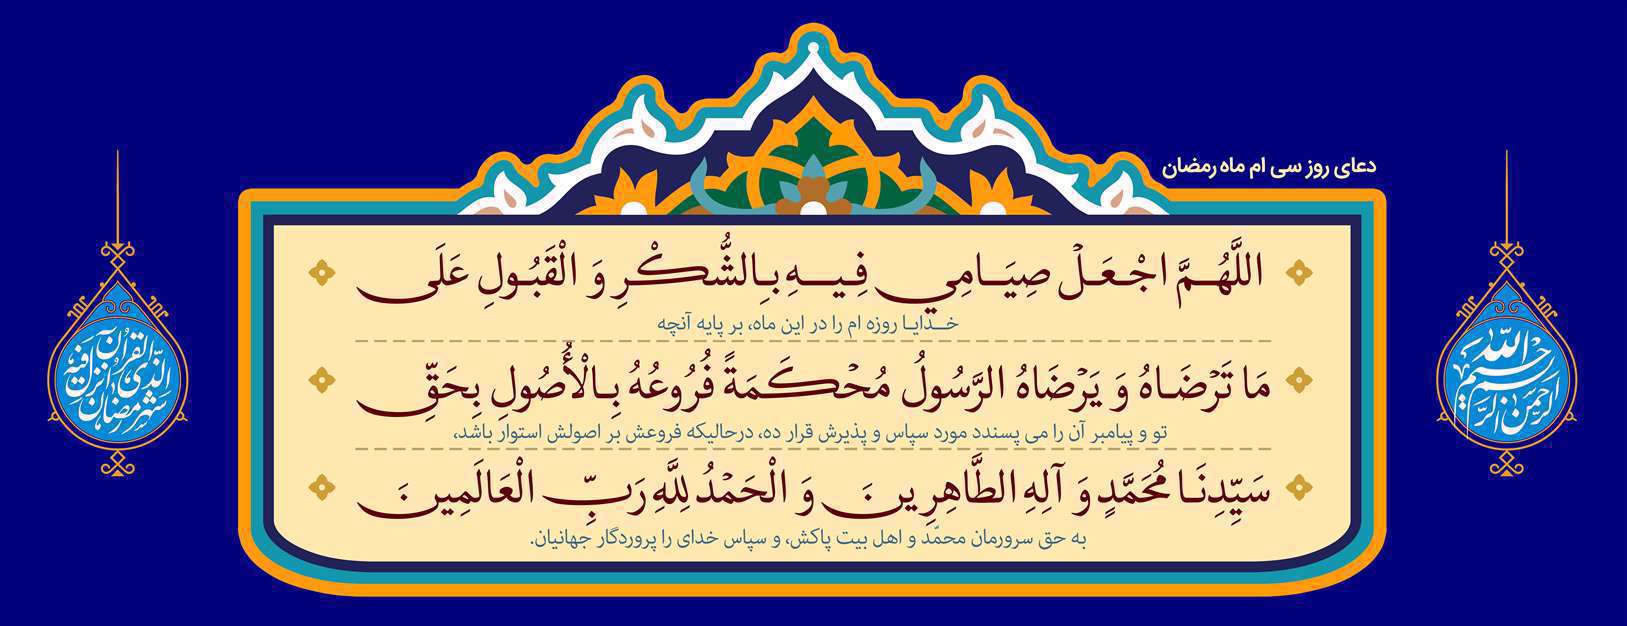 دعای روز سی ام ماه رمضان
اللَّهُمَّ اجْعَلْ صِيَامِي فِيهِ بِالشُّكْرِ وَ الْقَبُولِ عَلَى
خدایا روزه ام را در این ماه، بر پایه آنچه
مَا تَرْضَاهُ وَ يَرْضَاهُ الرَّسُولُ مُحْكَمَةً فُرُوعُهُ بِالْأُصُولِ بِحَقِّ
تو و پیامبر آن را می پسندد مورد سپاس و پذیرش قرار ده، درحالیکه فروعش بر اصولش استوار باشد،
سَيِّدِنَا مُحَمَّدٍ وَ آلِهِ الطَّاهِرِينَ وَ الْحَمْدُ لِلَّهِ رَبِّ الْعَالَمِينَ
به حق سرورمان محمّد و اهل بیت پاکش، و سپاس خدای را پروردگار جهانیان.
بسم الله الرحمن الرحیم
شهر رمضان الذی انزل فیه القرآن